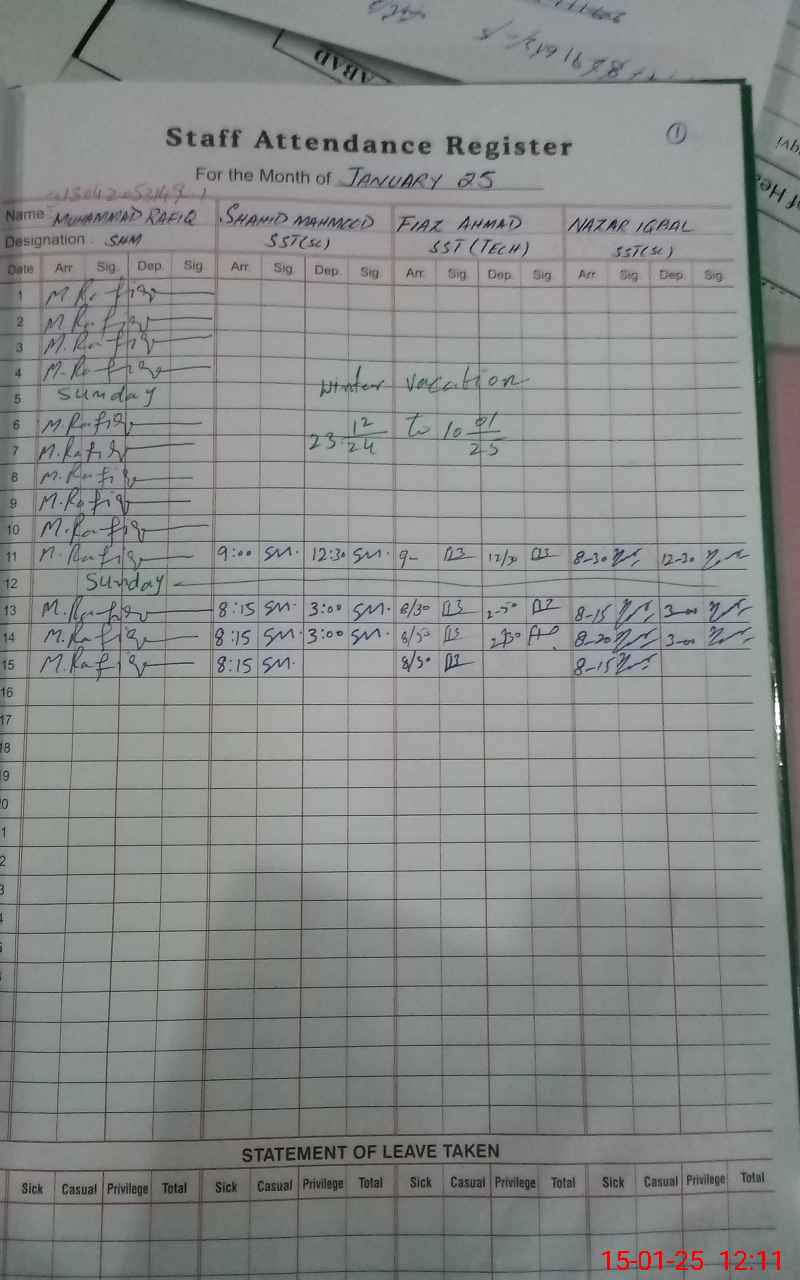 ABAD
Staff Attendance Register
1
For the Month of JANUARY 25
Name MUHAMMAD RAFIQ SHAHID MAHMOOD FIAZ AHMAD NAZAR IQBAL
Designation SHM SST(SC) SST (TECH) SST(SC)
Date Arr. Sig. Dep. Sig. Arr. Sig. Dep. Sig. Arr. Sig. Dep. Sig. Arr. Sig. Dep. Sig.
1 M.Rafiq
2 M.Rafiq
3 M.Rafiq
4 M.Rafiq
5 Sunday Winter vacation
6 M.Rafiq 23 12/24 to 10 01/25
7 M.Rafiq
8 M.Rafiq
9 M.Rafiq
10 M.Rafiq
11 M.Rafiq 9:00 SM. 12:30 SM. 9- 12/30 8-30 12-30
12 Sunday
13 M.Rafiq 8:15 SM. 3:00 SM. 8/30 2-50 8-15 3-00
14 M.Rafiq 8:15 SM. 3:00 SM. 8/30 8-20 3-00
15 M.Rafiq 8:15 SM. 8/30 8-15
16
17
18
9
0
1
2
3
STATEMENT OF LEAVE TAKEN
Sick Casual Privilege Total Sick Casual Privilege Total Sick Casual Privilege Total Sick Casual Privilege Total
15-01-25 12:11